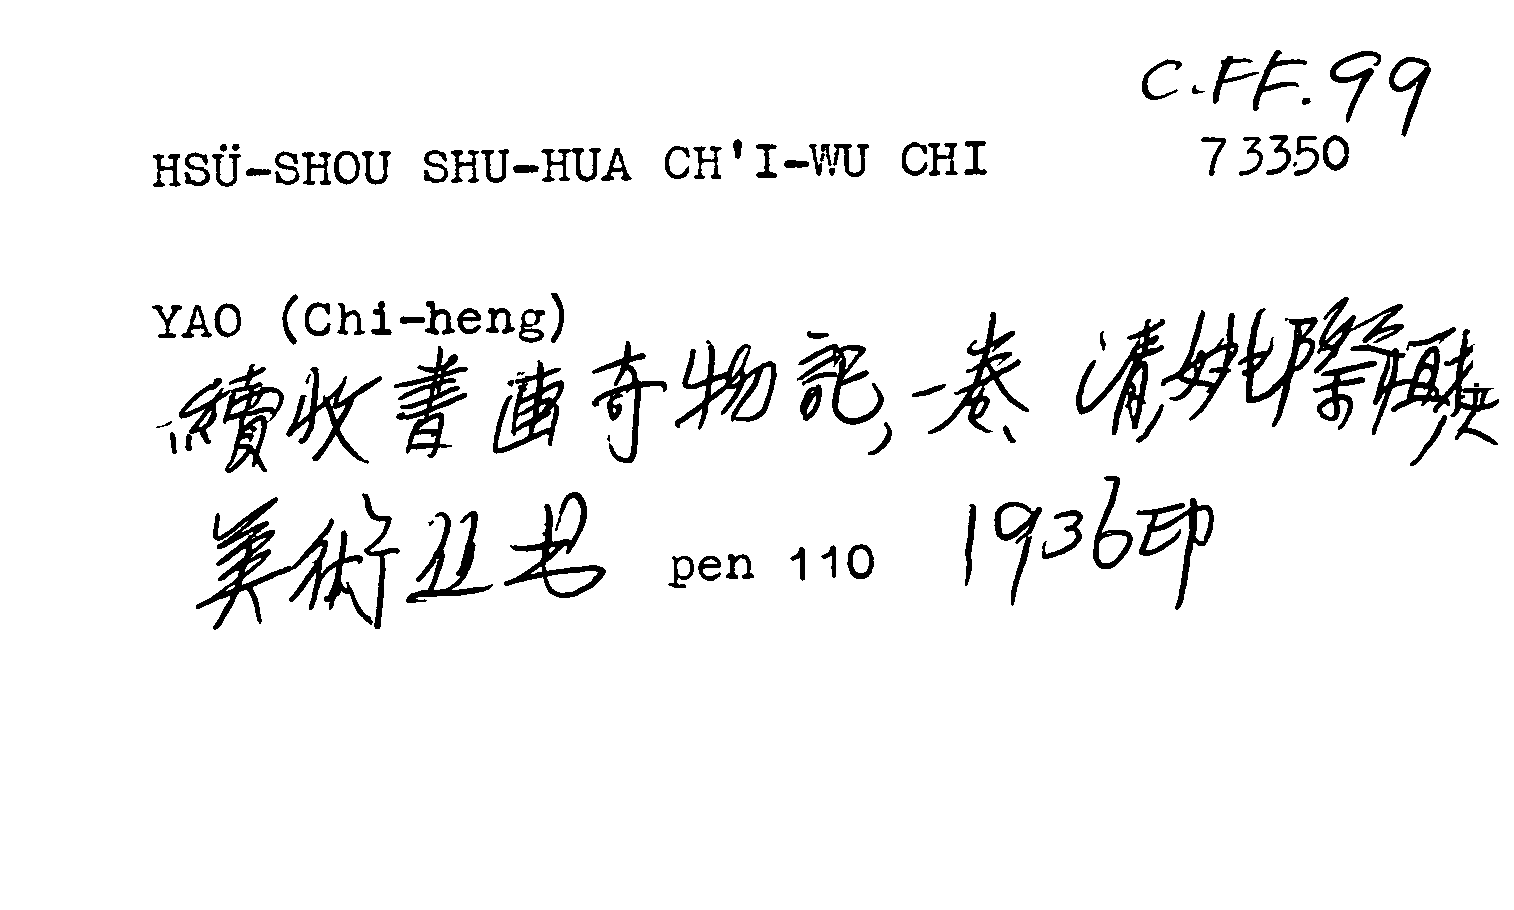 C.FF.99
HSÜ-SHOU SHU-HUA CH'I-WU CHI 73350
YAO (Chi-heng)
續收書畫奇物記,一卷 清姚際恒撰
美術丛书 pen 110 1936印